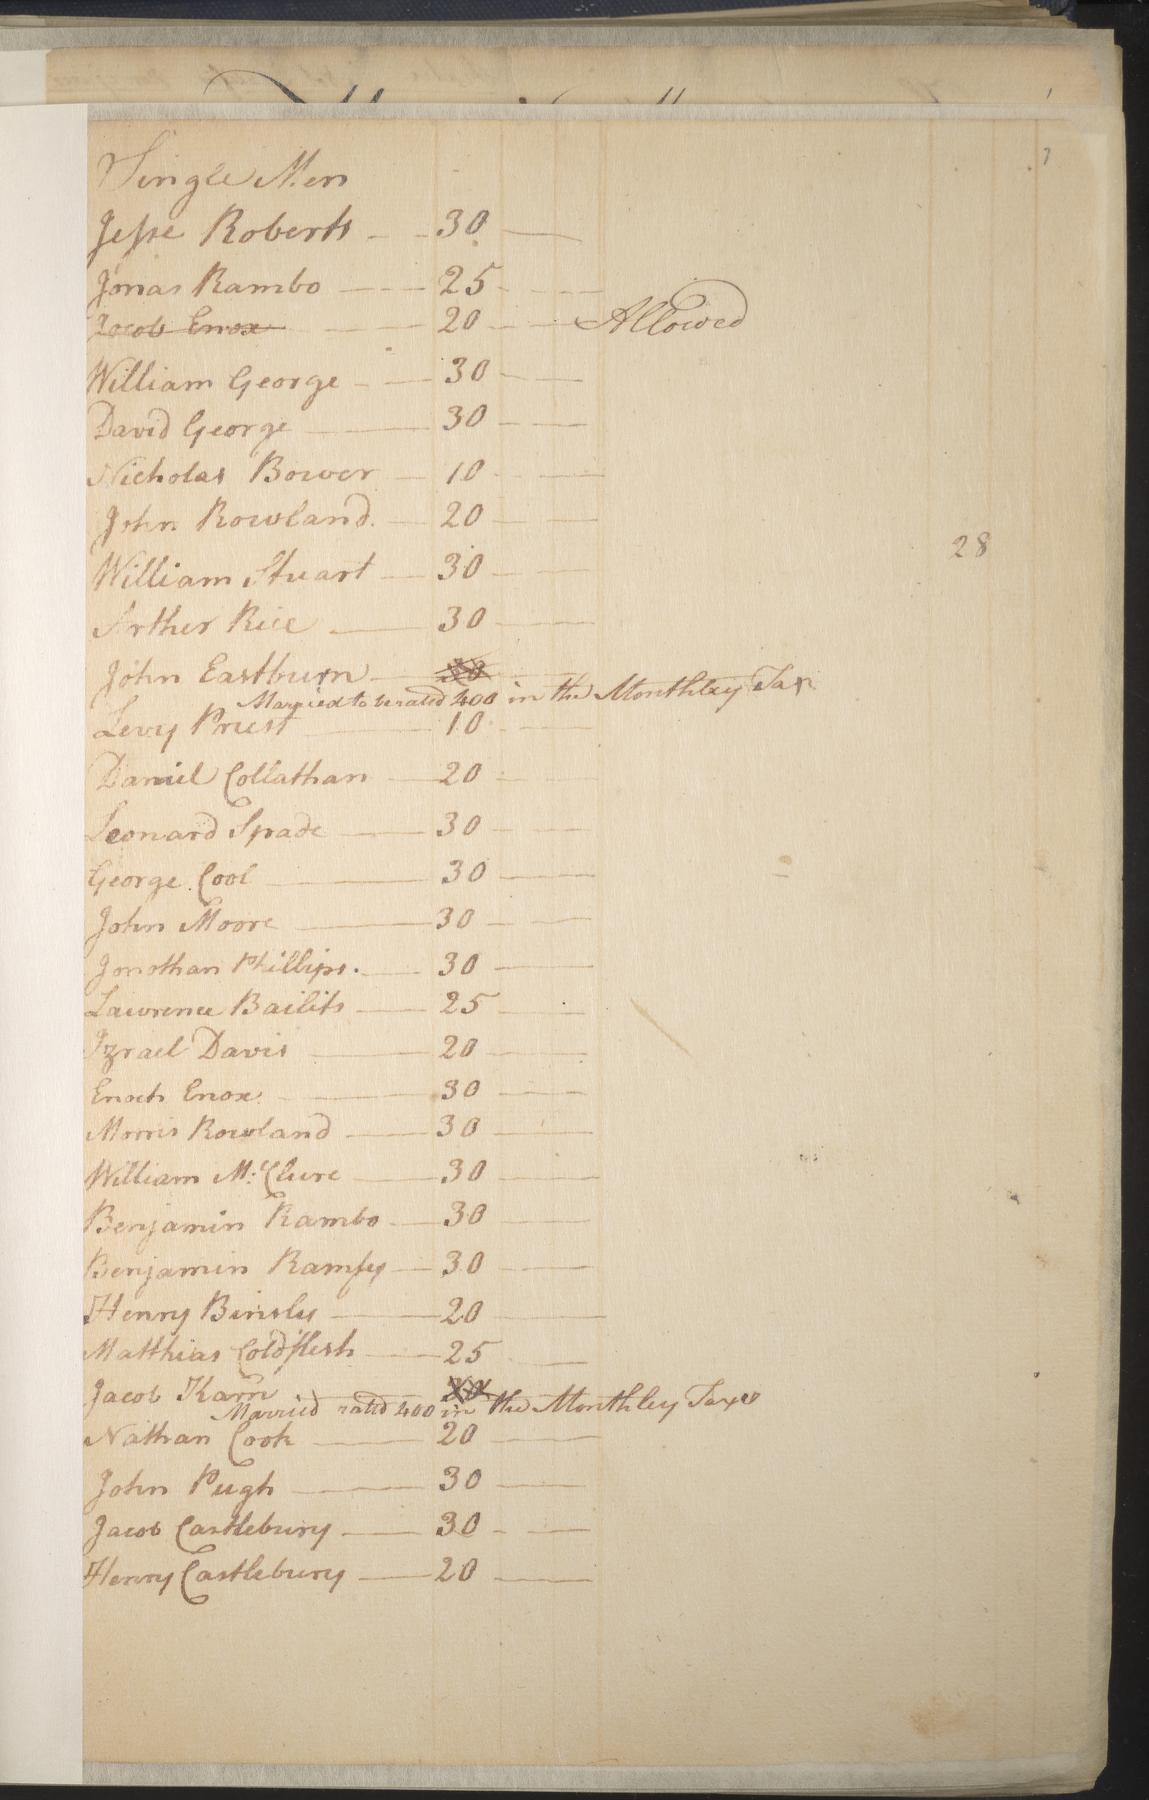 7
Single Men
Jesse Roberts 30
Jonas Rambo 25
Jacob Enox 20 Allowed
William George 30
David George 30
Nicholas Bower 10
John Rowland 20
28
William Stuart 30
Arther Rice 30
John Eastburn
Married to be rated 400 in the Monthley Tax
Levy Priest 10
Daniel Collathan 20
Leonard Spade 30
George Cool 30
John Moore 30
Jonothan Phillips. 30
Lawrence Bailits 25
Izrael Davis 20
Enoch Enox 30
Morris Rowland 30
William Mc.Clure 30
Benjamin Rambo 30
Benjamin Ramsy 30
Henry Binsly 20
Matthias Coldflesh 25
Jacob Karn
Married rated 400 in the Monthley Taxe
Nathan Cook 20
John Pugh 30
Jacob Castlebury 30
Henry Castlebury 20